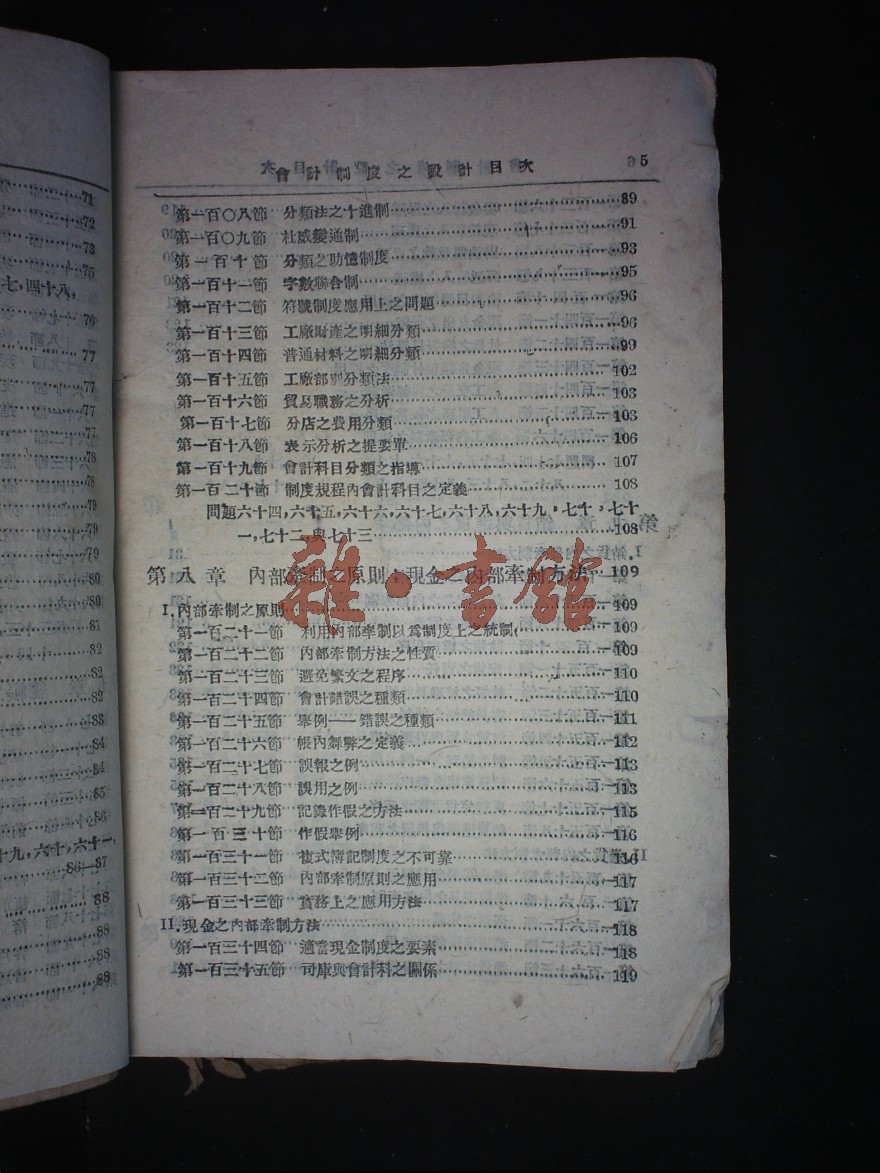 會計制度之設計目次 5
第一百〇八節 分類法之十進制 89
第一百〇九節 杜威變通制 91
第一百十節 分類之助憶制度 93
第一百十一節 字數聯合制 95
第一百十二節 符號制度應用上之問題 96
第一百十三節 工廠財產之明細分類 96
第一百十四節 普通材料之明細分類 99
第一百十五節 工廠部別分類法 102
第一百十六節 貿易職務之分析 103
第一百十七節 分店之費用分類 103
第一百十八節 表示分析之提要單 106
第一百十九節 會計科目分類之指導 107
第一百二十節 制度規程內會計科目之定義 108
問題六十四,六十五,六十六,六十七,六十八,六十九,七十,七十
一,七十二,與七十三 108
第八章 內部牽制之原則;現金之內部牽制方法 109
I.內部牽制之原則 109
第一百二十一節 利用內部牽制以爲制度上之統制 109
第一百二十二節 內部牽制方法之性質 109
第一百二十三節 避免繁文之程序 110
第一百二十四節 會計錯誤之種類 110
第一百二十五節 舉例——錯誤之種類 111
第一百二十六節 帳內舞弊之定義 112
第一百二十七節 誤報之例 113
第一百二十八節 誤用之例 113
第一百二十九節 記錄作假之方法 115
第一百三十節 作假舉例 116
第一百三十一節 複式簿記制度之不可靠 116
第一百三十二節 內部牽制原則之應用 117
第一百三十三節 實務上之應用方法 117
II.現金之內部牽制方法 118
第一百三十四節 適當現金制度之要素 118
第一百三十五節 司庫與會計科之關係 119
71
72
73
75
七,四十八,
76
77
77
77
77
78
78
79
79
79
80
81
82
82
83
84
84
85
86
十九,六十,六十一,
86—87
88
88
88
88
雜·書館